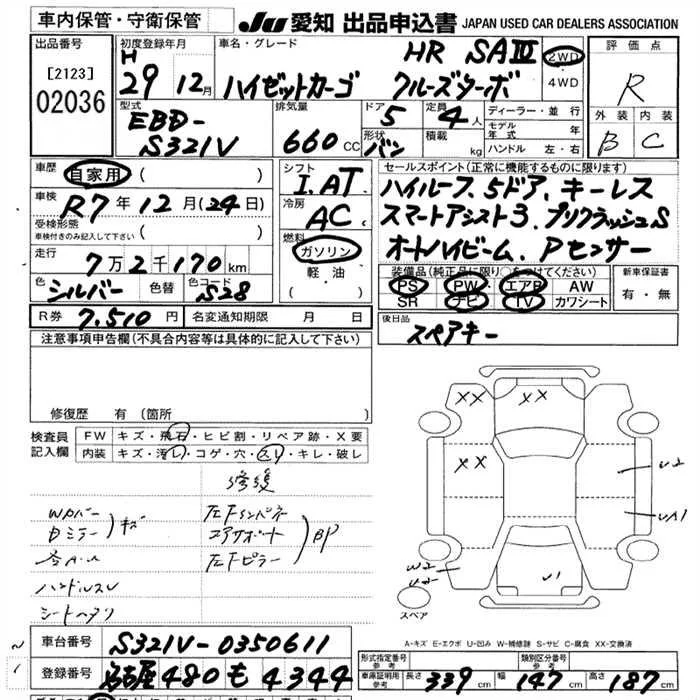 車内保管・守衛保管
JU 愛知 出品申込書 JAPAN USED CAR DEALERS ASSOCIATION
出品番号
[2123]
02036
初度登録年月
H
29年 12月
車名・グレード
HR SAⅢ
ハイゼットカーゴ クルーズターボ
2WD
・
4WD
評価点
R
外装 内装
B C
型式
EBD-
S321V
排気量
660 CC
ドア
5
形状
バン
定員
4人
積載
kg
ディーラー・並行
モデル年式 年
ハンドル 左・右
車歴
自家用 ( )
車検
R7年12月(24日)
受検形態
車検付きのみ記入して下さい ( )
走行
7万2千170km
色 シルバー 色替 色コード S28
シフト
I.AT
冷房
AC
燃料
ガソリン
軽・油
( )
セールスポイント(正常に機能するものに限ります)
ハイルーフ、5ドア、キーレス
スマートアシスト3、プリクラッシュS
オートハイビーム、Pセンサー
装備品(純正品に限り○をつけてください)
PS PW エアB AW
SR ナビ TV カワシート
新車保証書
有・無
R券 7,510円 名変通知期限 月 日
後日品
スペアキー
注意事項申告欄(不具合内容等は具体的に記入して下さい)
修復歴 有(箇所 )
検査員
記入欄
FW キズ・飛石・ヒビ割・リペア跡・X要
内装 キズ・汚レ・コゲ・穴・スリ・キレ・破レ
修復
Wカバー
Dミラー キズ
各A・W
ハンドルスレ
シートヘタリ
左Fインパネ
コアサポート
左Fピラー
BP
XX XX
XX
U2
UA1
W2
U2
U1
スペア
A-キズ E-エクボ U-凹み W-補修跡 S-サビ C-腐食 XX-交換済
車台番号 S321V-0350611
登録番号 名古屋 480 も 4344
形式指定番号
参考
類別区分番号
参考
車庫証明用
参考
長さ 339cm 幅 147cm 高さ 187cm